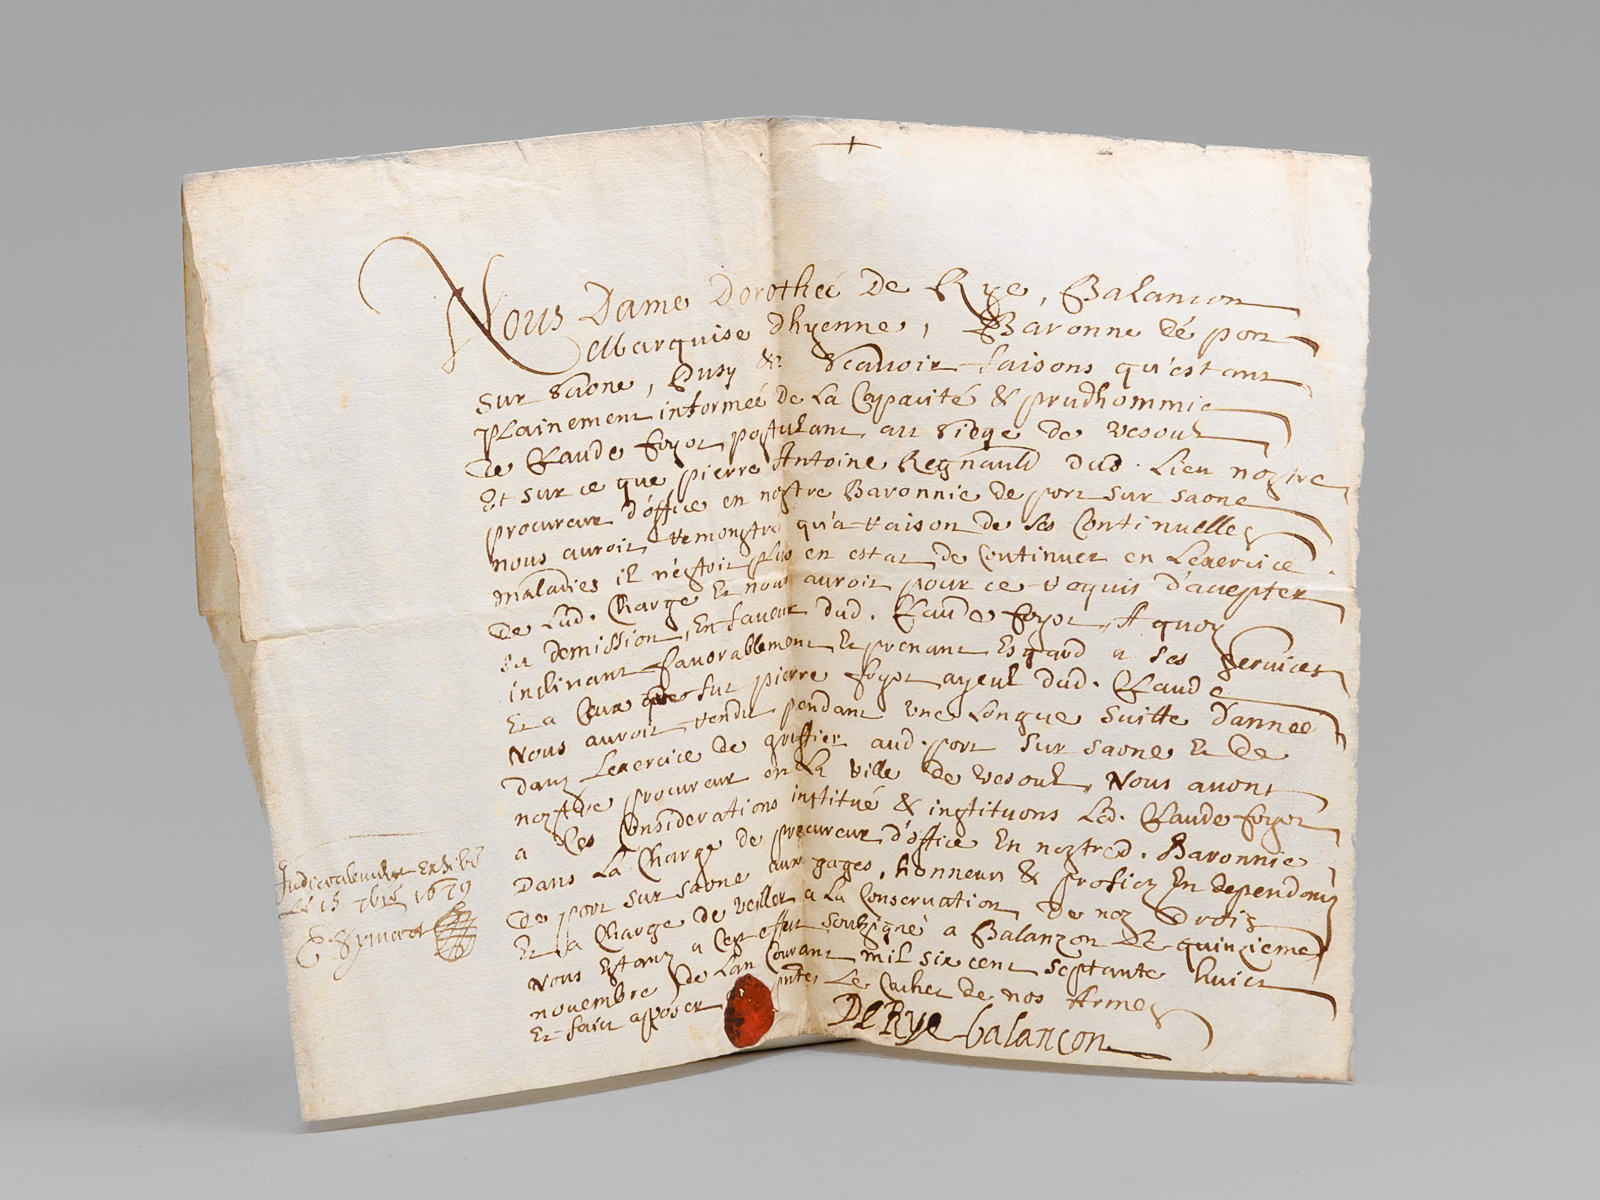 +
Nous Dame Dorotheé De Rye, Balancon
Marquise dhyenne, Baronne dé port
sur Saone, Pusy &c Scauoir faisons qu'estant
plainement informeé de La Capacité & prudhommie
de Claude foyot postulant au siege de vesoul
Et sur ce que pierre Antoine Regnauld dud. Lieu nostre
procureur d'office en nostre Baronnie de port sur saone
nous auroit remonstré qu'a raison de ses Continuelles
maladies il n'estoit plus en estat de Continuer en Lexercice
de Lad. Charge Et nous auroit pour ce requis d'accepter
sa demission, En faueur dud. Claude foyot, A quoy
inclinant fauorablement Et prenant Esgard a ses seruices
Et a Ceux que fut pierre foyot ayeul dud. Claude
Nous auroit rendu pendant vne Longue suitte d'anneé
Dans Lexercice de greffier aud. port sur saone Et De
nostre procureur en La ville de vesoul, Nous auons
a Ces Considerations institué & instituons Led. Claude foyot
Dans La Charge de procureur d'office En nostred. Baronnie
De port sur saone aux gages, honneurs & profictz En dependons
Et a Charge de veiller a La Conservation De noz Droitz
Nous Estanz a Cest effect soubsigné a Balançon Le quinzieme
nouembre De Lan Courant mil six cent septante huict
Et faict apposer pntes Le Cachet de nos Armes
De Rye balancon
Judicialement Exhibé
Le 15 1679